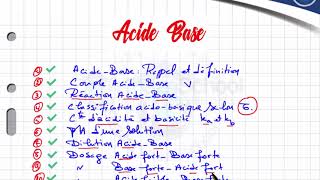 Acide Base
① Acide-Base: Rappel et définition
② Couple Acide-Base
③ Réaction Acide-Base
④ Classification acido-basique selon
⑤ Cste d'acidité et basicité ka et kb
⑥ pH d'une solution
⑦ Dilution Acide-Base
⑧ Dosage Acide fort-Base forte
" Base forte-Acide fort